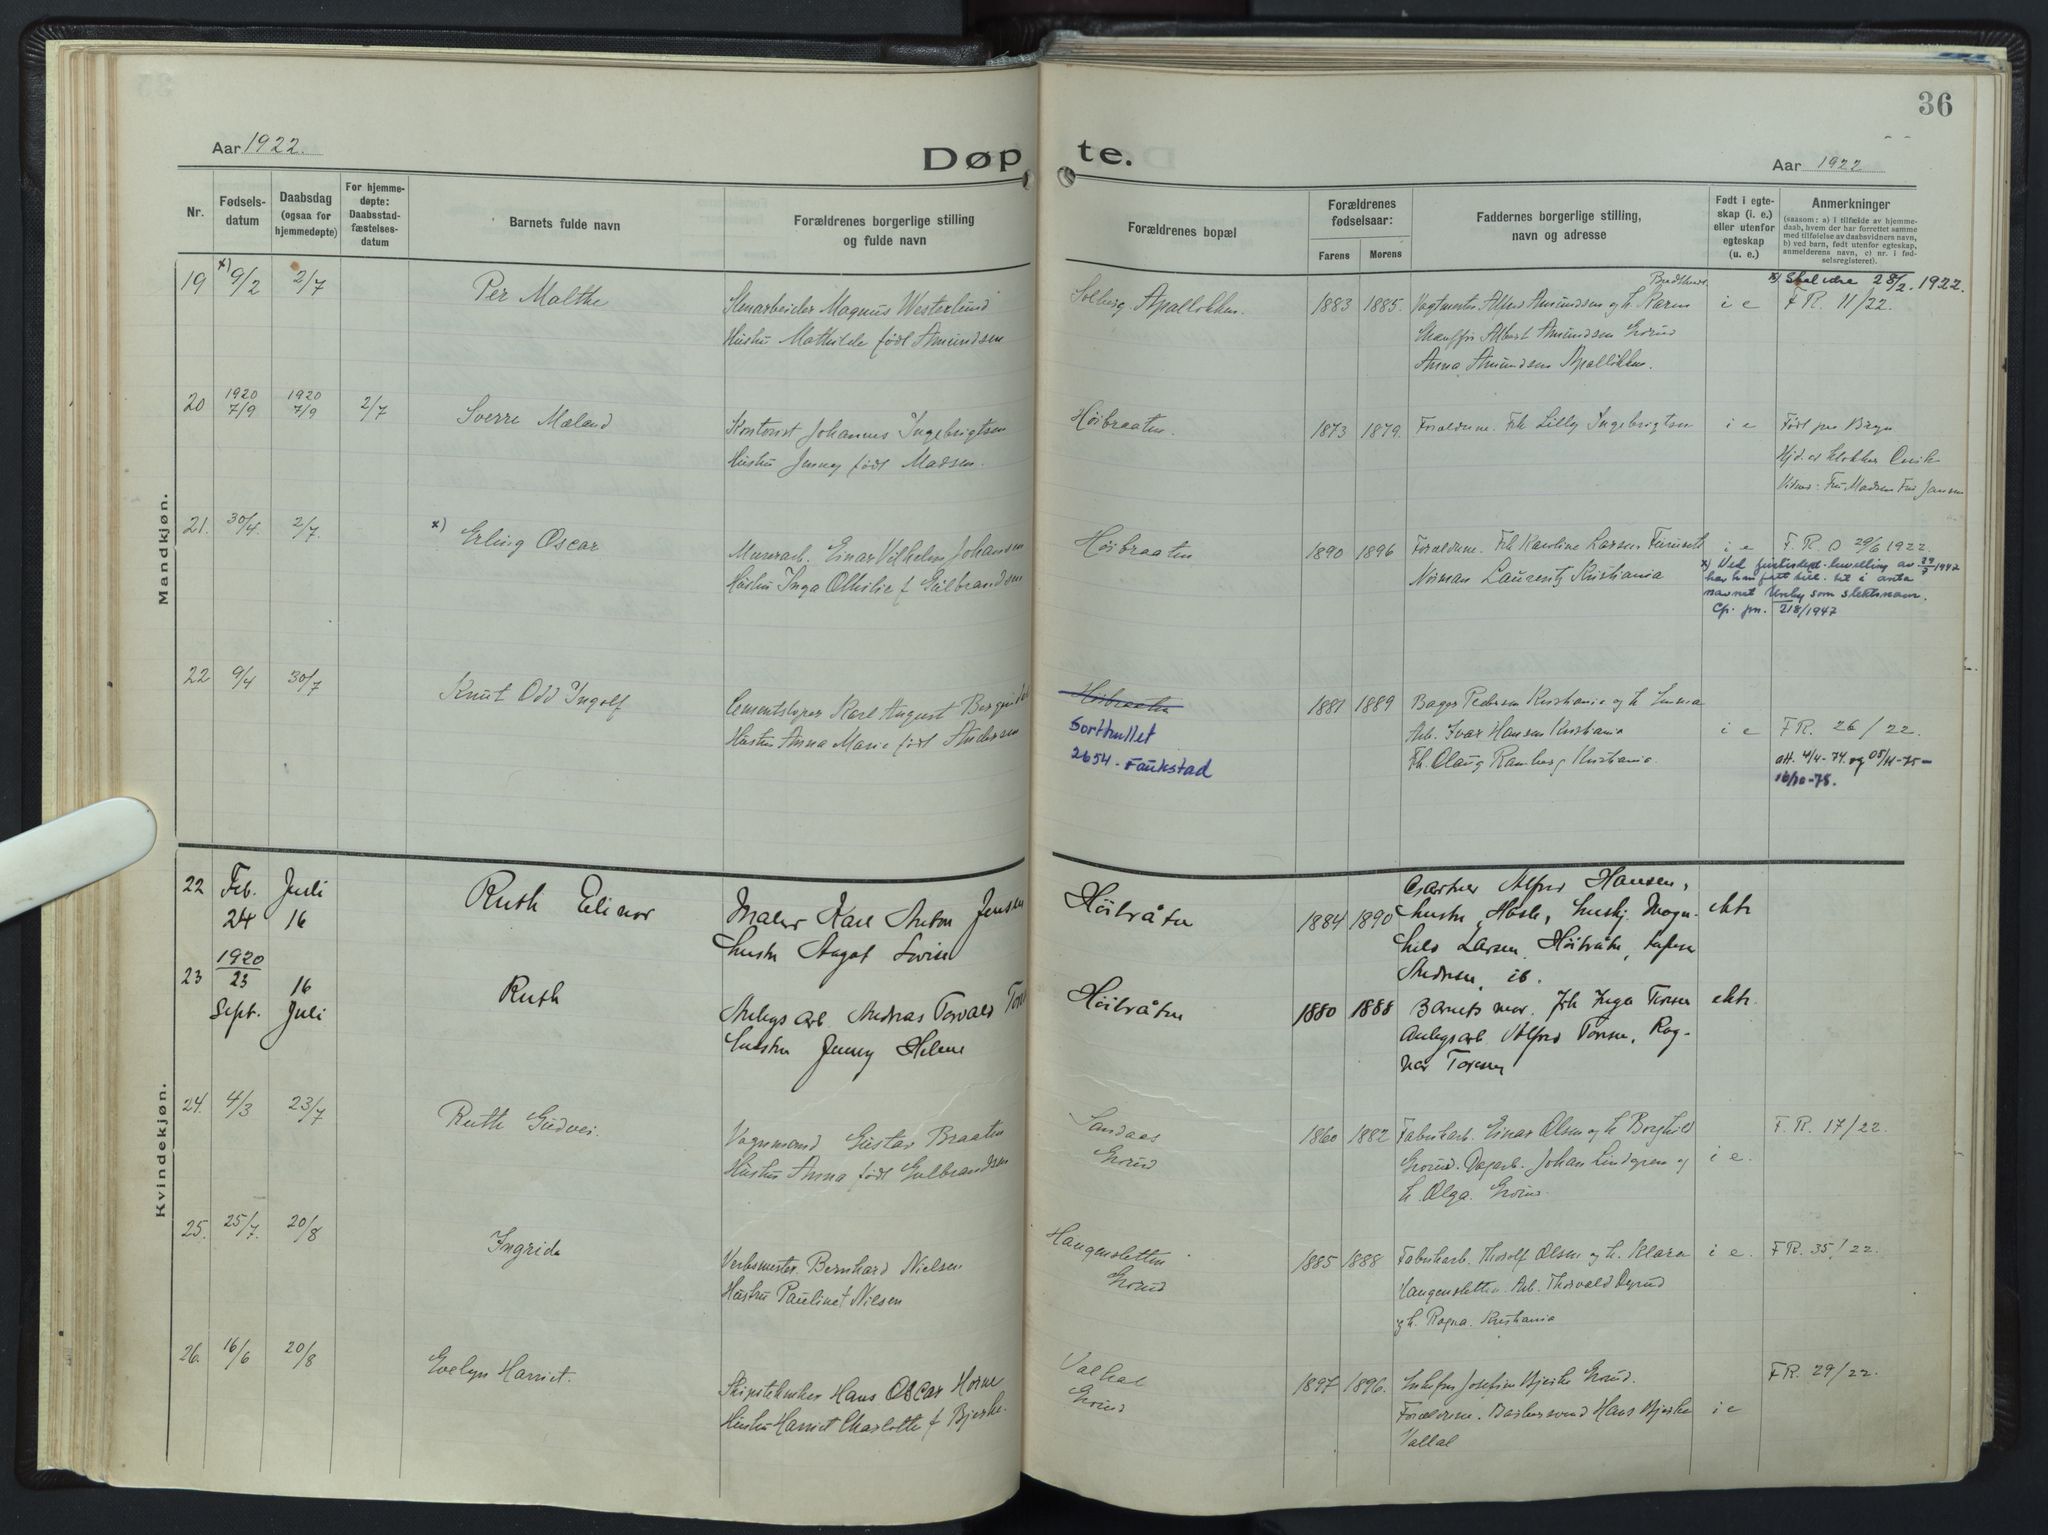 36
Aar 1922.
Døpte.
Aar 1922
Nr.
Fødsels-
datum
Daabsdag
(ogsaa for
hjemmedøpte)
For hjemme-
døpte:
Daabsstad-
fæstelses-
datum
Barnets fulde navn
Forældrenes borgerlige stilling
og fulde navn
Forældrenes bopæl
Forældrenes
fødselsaar:
Farens
Morens
Faddernes borgerlige stilling,
navn og adresse
Født i egte-
skap (i. e.)
eller utenfor
egteskap
(u. e.)
Anmerkninger
(saasom: a) i tilfælde av hjemme-
daab, hvem der har forrettet samme
med tilføielse av daabsvidners navn,
b) ved barn, født utenfor egteskap,
anmelderens navn, c) nr. i fød-
selsregisteret).
Mandkjøn.
19 x) 9/2 2/7 Per Malthe
Stenarbeider Magnus Westerlund
Hustru Mathilde født Amundsen
Solberg. Apalløkken.
1883 1885.
Vogtmester Alfred Amundsen og h. Karen
Albert Amundsen Grorud
Anna Amundsen Apalløkken.
i e
x) Skal være 28/2. 1922.
F R. 11/22.
20 1920 7/9 1920 7/9 2/7 Sverre Mæland
Kontorist Johannes Ingebrigtsen
Hustru Jenny født Madsen.
Høibraaten.
1873 1879.
Forældrene. Frk Lilly Ingebrigtsen
i e
Født paa Bryn
Hjd. av klokker
Vidner: Fru Madsen Fru Jansen
21. 30/4. 2/7. x) Erling Oscar
Murerarb. Einar Vilhelm Johansen
Hustru Inga Othilie f Gulbrandsen
Høibraaten
1890 1896
Forældrene. Frk Karoline Larsen Furuset
Norman Laurentz Kristiania
i e
F. R. O 29/6 1922.
x) Ved bevilling av 29/7 1947
har han fått till. til å anta
navnet som slektsnavn.
Cp. jnr. 218/1947
22 9/4 30/7 Knut Odd Ingolf
Cementstøper Karl August
Hustru Anna Marie født Andersen
Høibraaten
Sorthullet
2654 - Faukstad
1881 1889
Bager Pedersen Kristiania og h Emma
Arb. Ivar Hansen Kristiania
Frk. Olaug Ramberg Kristiania.
i e
F R. 26/22.
att. 4/4-74. og 05/11-75 -
16/10-78.
Kvindekjøn.
22 Feb. 24 Juli 16 Ruth Elinor
Maler Karl Anton Jensen
hustru Aagot Lovise
Høibråten
1884 1890
Gartner Alfred Hansen,
hustru, Hasle, husej. Magn-
hild Larsen, Høibråten,
Andresen, ib.
ekte
23 1920 23 Sept. 16 Juli Ruth
Anlegsarb. Andreas Torvald
hustru Jenny Helene
Høibråten
1880 1888
Barnets mor, frk Inga Toresen
Anlegsarb. Alfred Toresen, Rag-
nar Toresen
ekte.
24. 4/3 23/7 Ruth Gudvei.
Vognmand Gustav Braaten
Hustru Anna født Gulbrandsen
Sandaas
Grorud
1860 1882
Fabrikarb. Einar Olsen og h Borghild
Grorud. Dagarb. Johan Lindgren og
h. Olga. Grorud.
i e.
F. R. 17/22.
25. 25/7. 20/8 Ingrid
Verksmester. Bernhard Nielsen
Hustru Pauline f Nilsen
Haugensletten
Grorud
1885 1888
Fabrikarb. Thorolf Olsen og h. Klara
Haugensletten. Arb. Thorvald Dyrud
og h. Ragna. Kristiania
i e.
F R. 35/22.
26. 16/6 20/8 Evelyn Harriet.
Skipstekniker Hans Oscar Horne
Hustru Harriet Charlotte f Bjerke.
Valhal
Grorud
1897 1896.
Enkefru Josefine Bjerke Grorud.
Forældrene. Hans Bjerke
Valhal
i e
F R. 29/22.